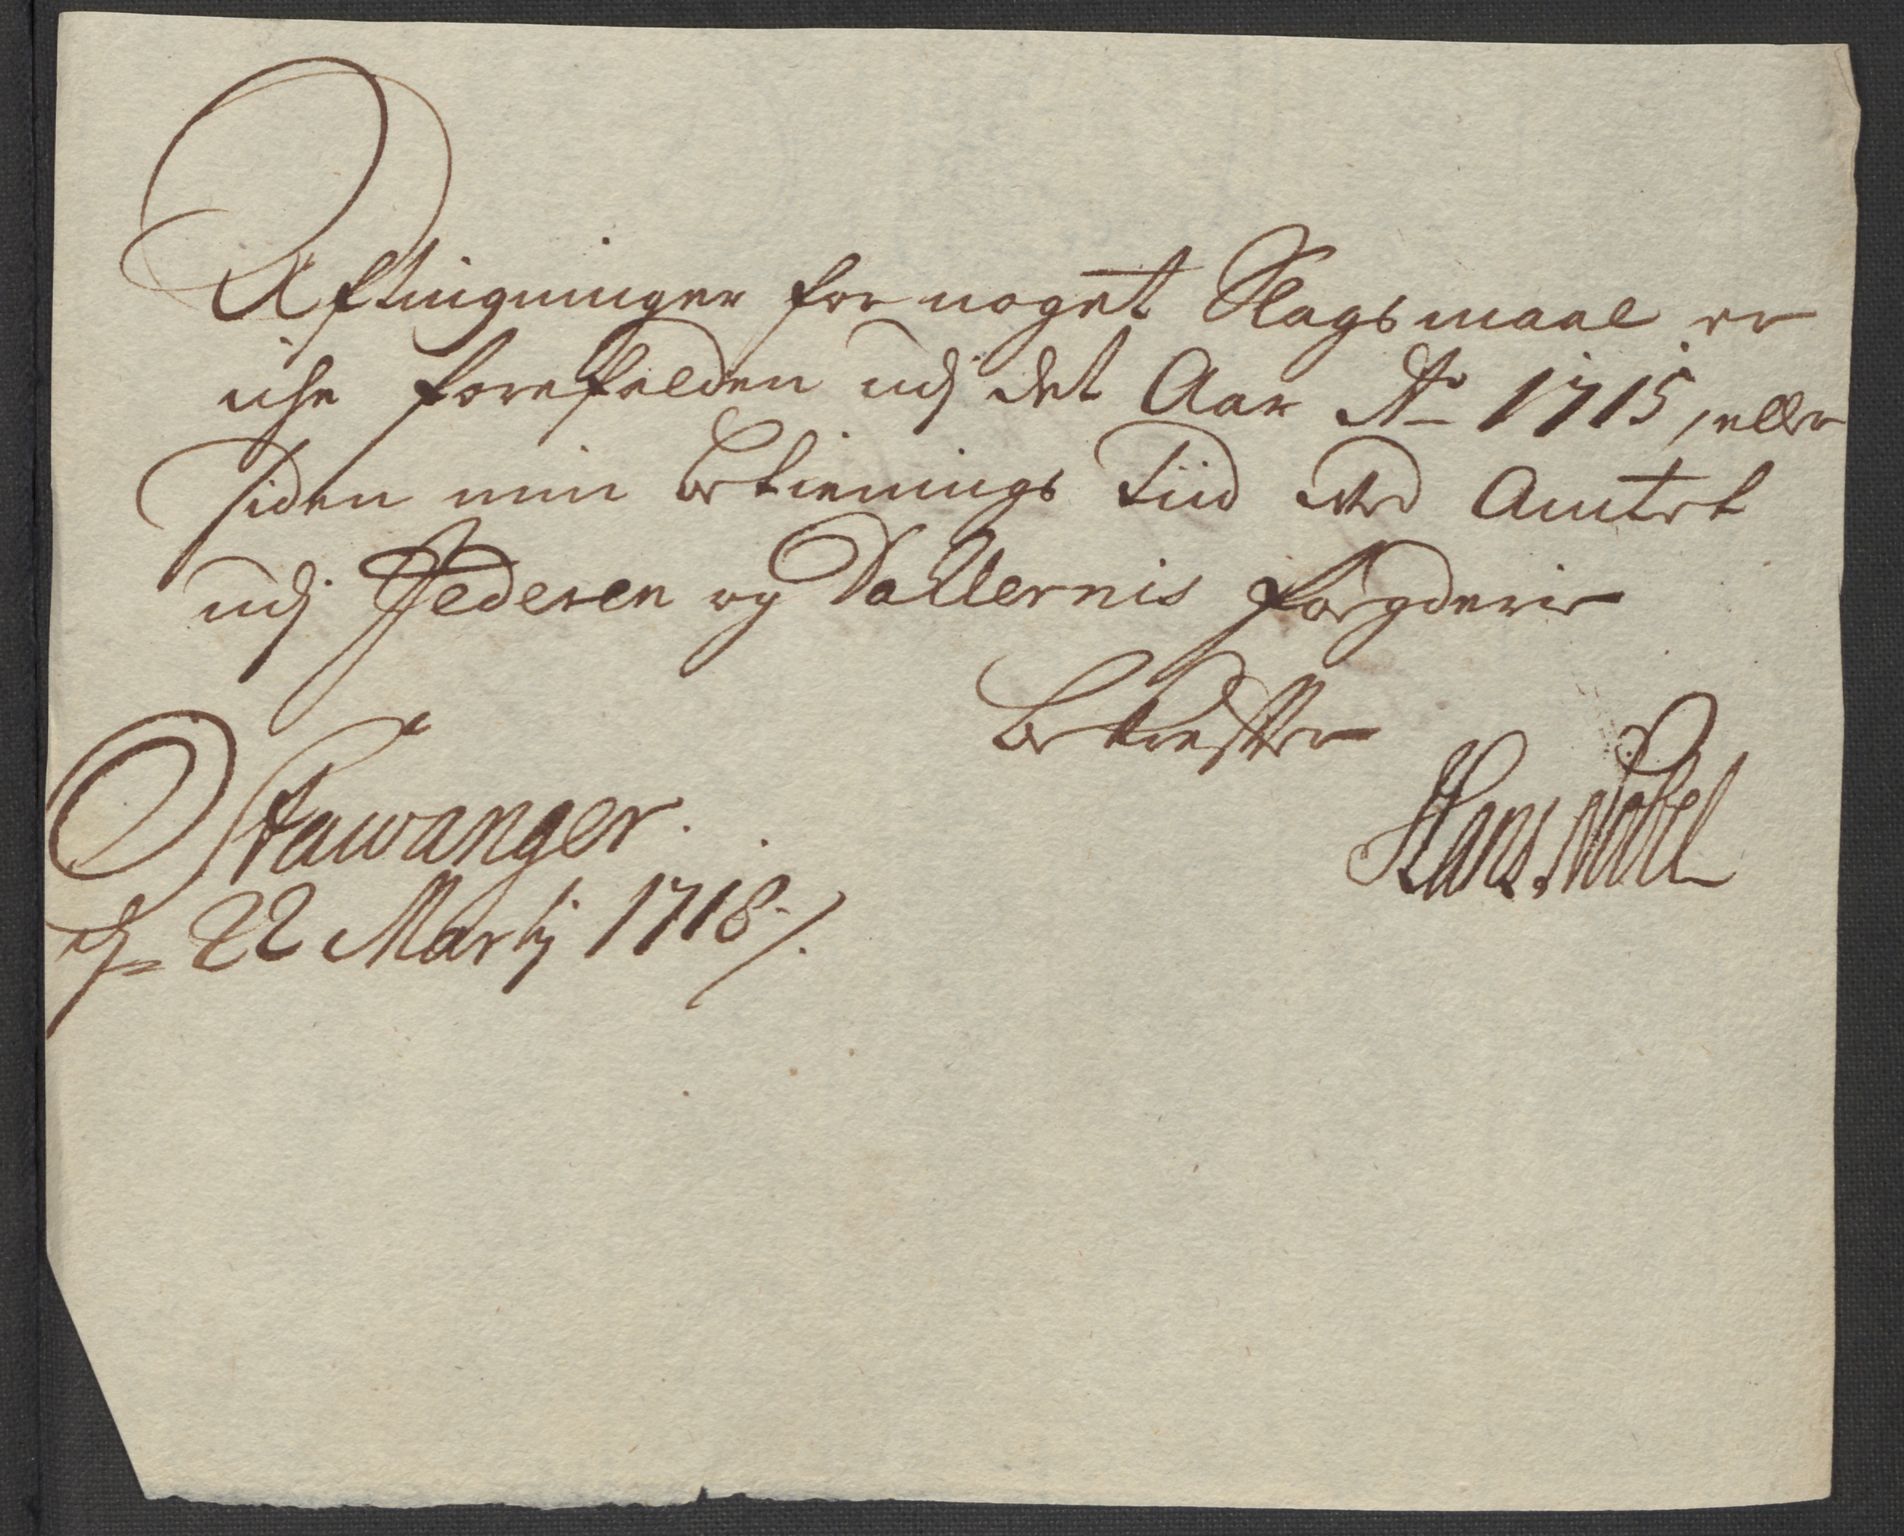 Aftingninger for noget Slagsmaal er
iche forefalden udj det Aar Ao 1715, eller
siden min betienings Tiid ved Amtet
udj Jederen og Dallernis fogderie
bekrefter
Hans Nobel
Stawanger
d 22 Martij 1718 /.